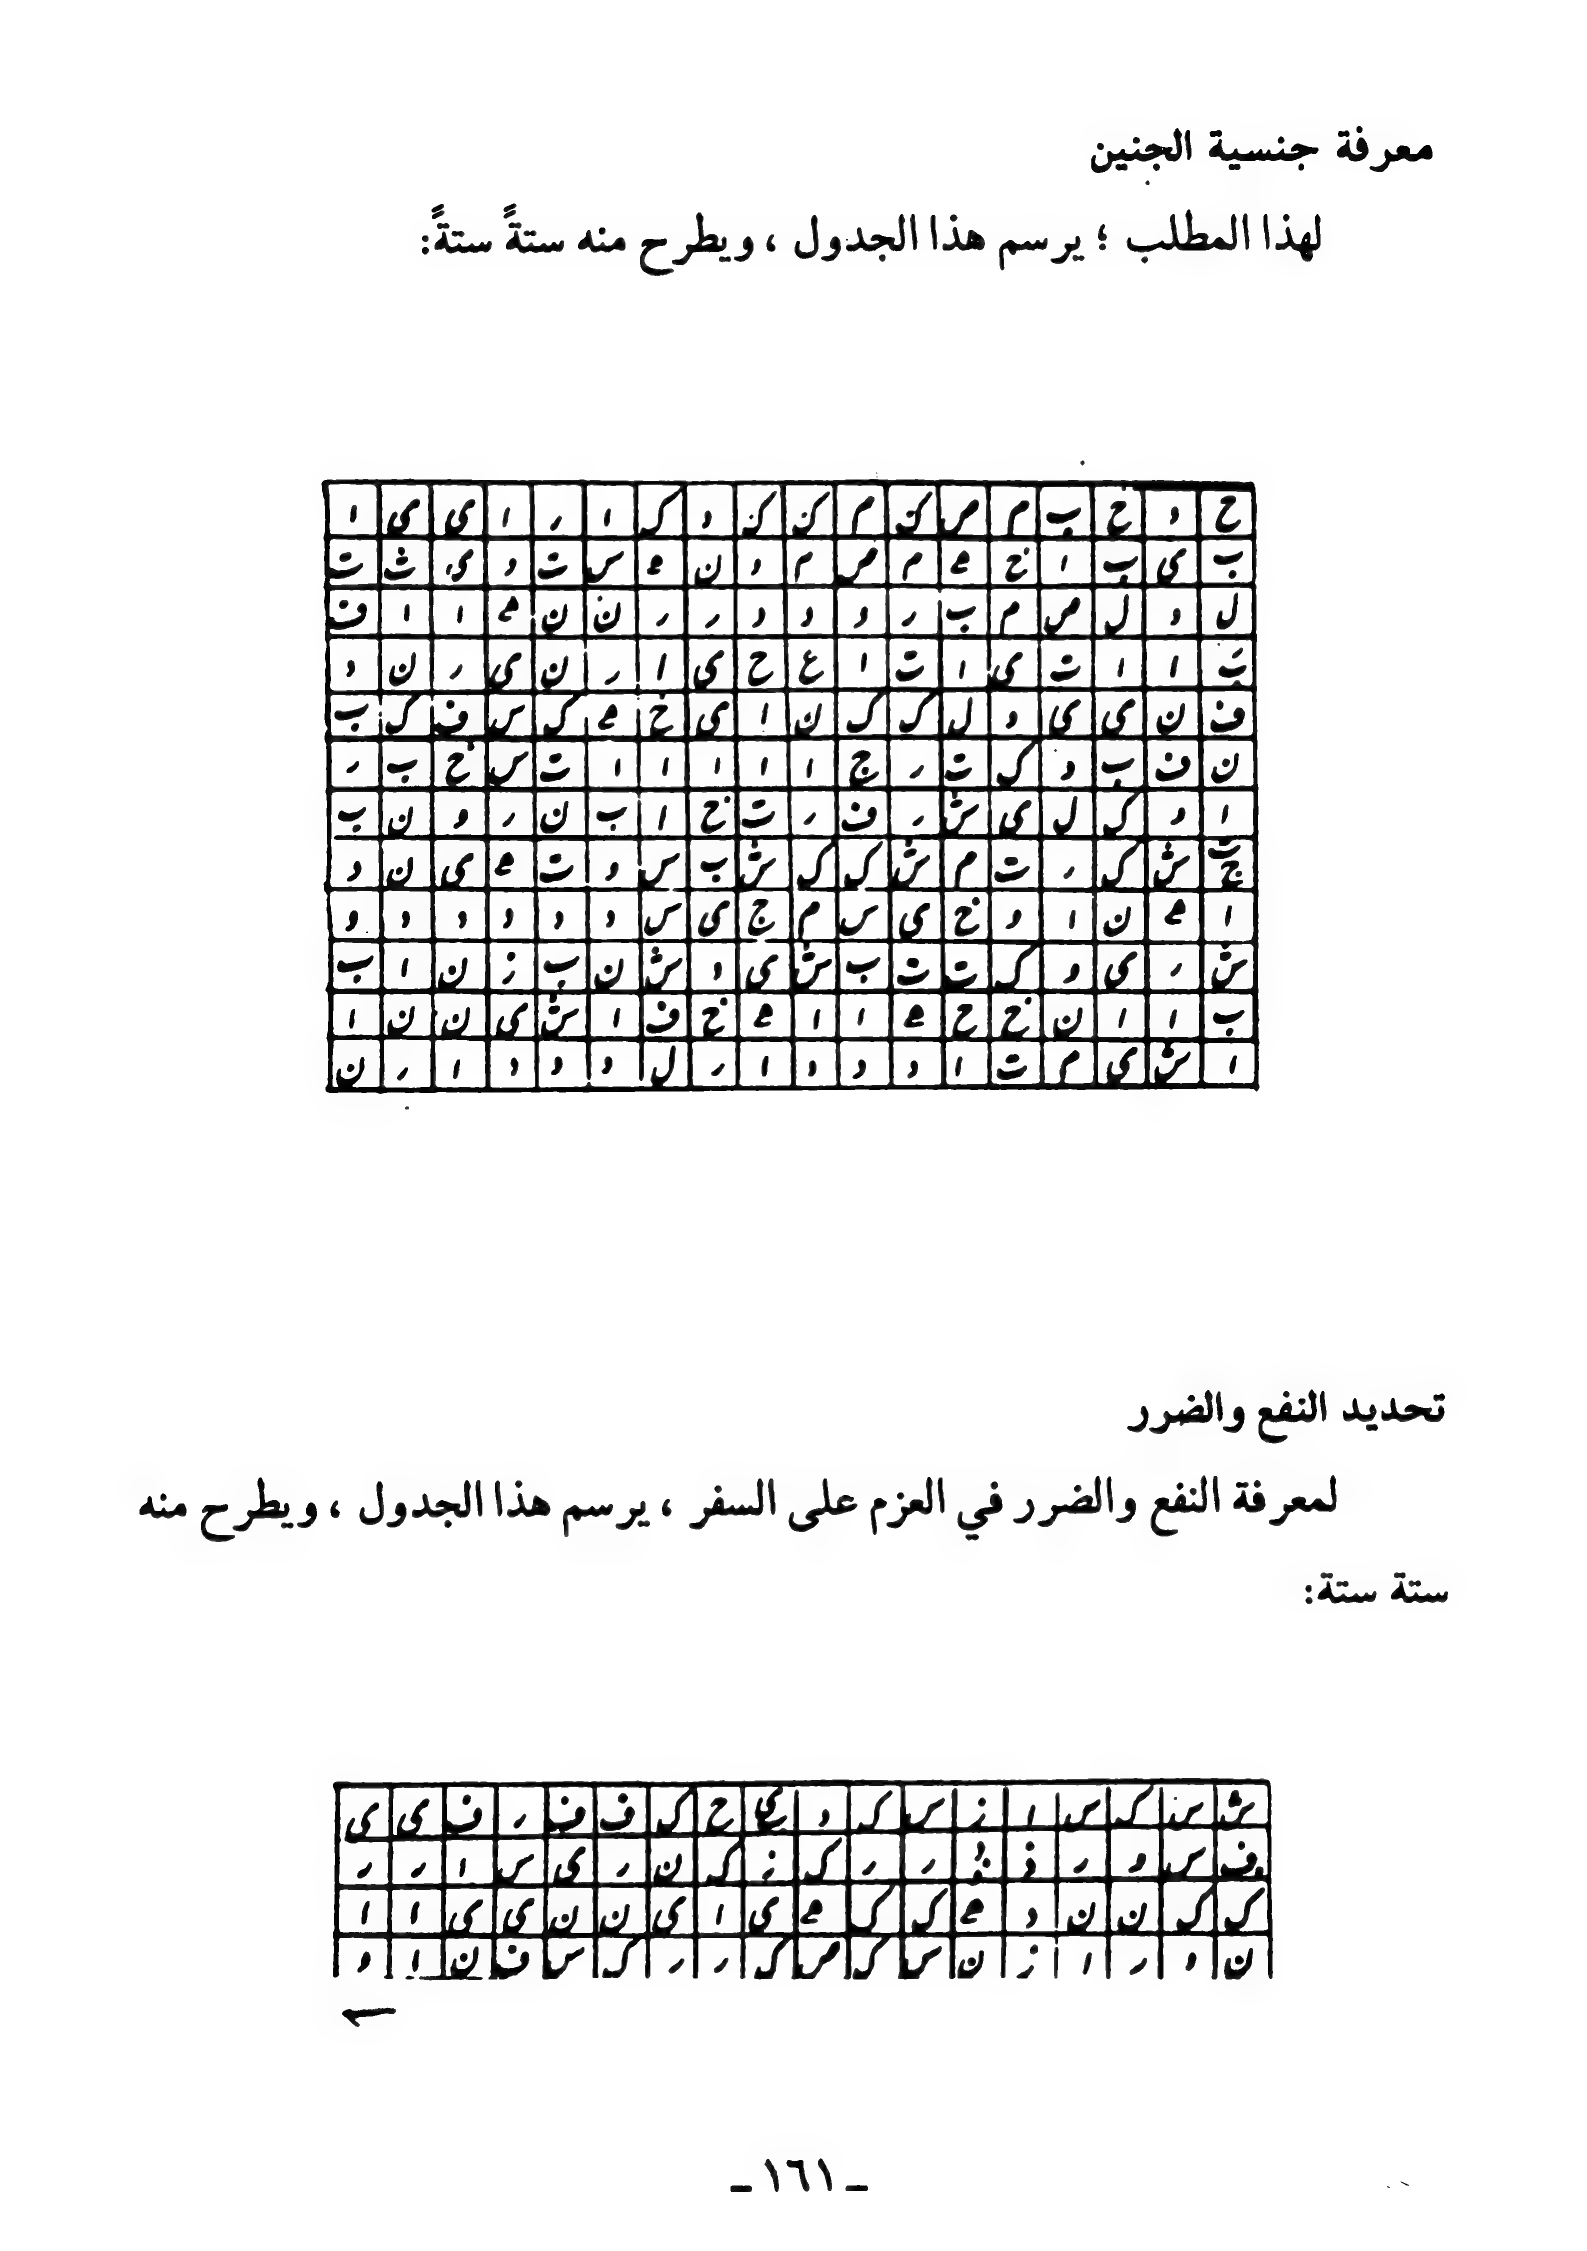 معرفة جنسية الجنين
لهذا المطلب ؛ يرسم هذا الجدول ، ويطرح منه ستةً ستةً:
ح د خ ب م ص ن م ن ن د ک ا ر ا ی ی ا
ب ی ب ا خ ه م ص م د ن ه س ت د ی ث ت
ل د ل ص م ب ر د د د ر ر ن ن ه ا ا ف
ت ا ا ت ی ا ت ا غ ح ی ا ر ن ی ر ن د
ف ن ی ی د ل ک ک ن ا ی خ ه ک س ف ک ب
ن ف ب د ک ت ر ج ا ا ا ا ا ت س خ ب ر
ا د ک ل ی ش ر ف ر ت خ ا ب ن ر و ن ب
ش ک ر ت م ش ک ک ش ب س د ت ه ی ن د
ا ه ن ا د خ ی س م ج ی س د د د د د و
ش ر ی و ک ت ت ب ش ی د ش ن ب ز ن ا ب
ب ا ا ن خ ح ه ا ا ه خ ف ا ش ی ن ن ا
ا ش ی م ت ا د د د ا ر ل د د د ا ر ن
تحديد النفع والضرر
لمعرفة النفع والضرر في العزم على السفر ، يرسم هذا الجدول ، ويطرح منه
ستة ستة:
ش س ک س ا ز س ک د ح ک ف ف ر ف ی ی
ف س د ر ر ر ک ز ک ن ر ی س ا ر ر
ک ک ن ن د ه ک ک ه ی ا ی ن ن ی ی ا ا
ن د ر ا ز ن س ک ص ک ر ر ک س ف ن ا د
ـ ١٦١ ـ